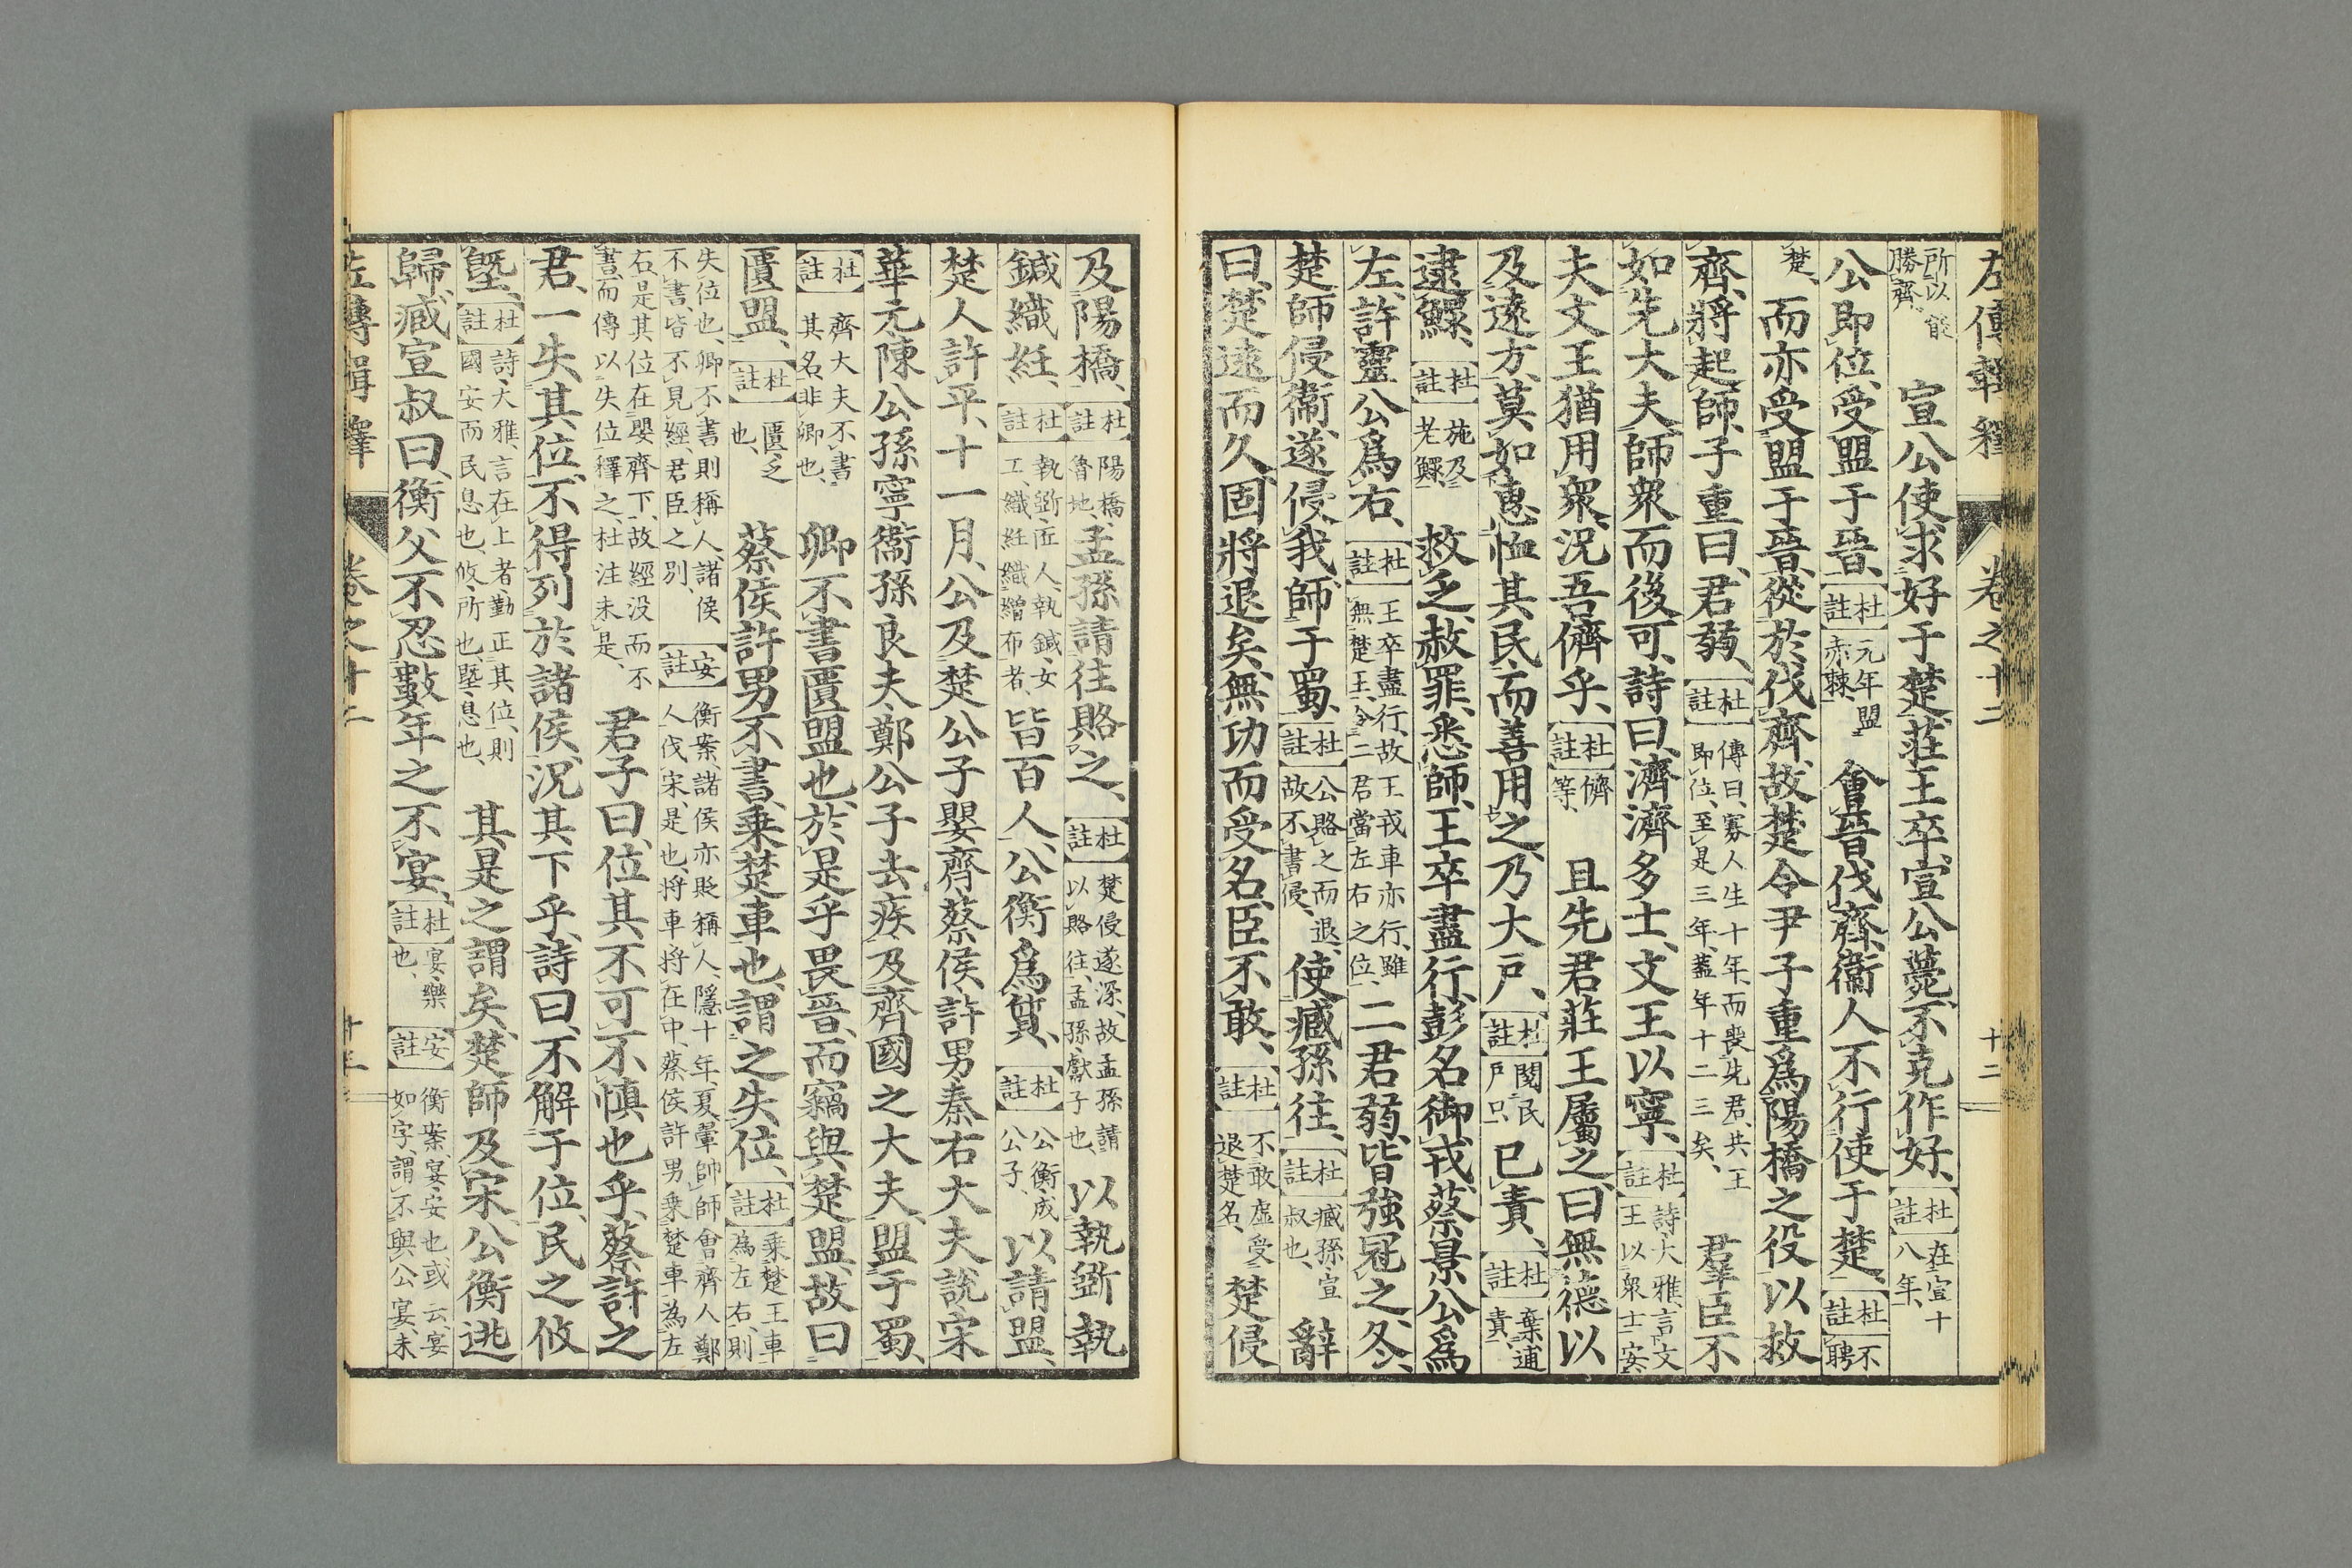 左傳輯釋 卷之十二 十二
所以能勝齊、 宣公使求好于楚、莊王卒、宣公薨、不克作好、杜註 在宣十八年、
公即位、受盟于晉、杜註 元年盟赤棘、 會晉伐齊、衞人不行使于楚、杜註 不聘
楚、 而亦受盟于晉、從於伐齊、故楚令尹子重爲陽橋之役以救
齊、將起師、子重曰、君弱、杜註 傳曰、寡人生十年、而喪先君、共王即位、至是三年、蓋年十二三矣、 羣臣不
如先大夫、師衆而後可、詩曰、濟濟多士、文王以寧、杜註 詩大雅、言文王以衆士安、
夫文王猶用衆、況吾儕乎、杜註 儕等、 且先君莊王屬之曰、無德以
及遠方、莫如惠恤其民、而善用之、乃大戶、杜註 閱民戶口、 已責、杜註 棄逋責、
逮鰥、杜註 施及老鰥、 救乏、赦罪、悉師、王卒盡行、彭名御戎、蔡景公爲
左、許靈公爲右、杜註 王卒盡行、故王戎車亦行、雖無楚王、令二君當左右之位、 二君弱、皆強冠之、冬、
楚師侵衞、遂侵我、師于蜀、杜註 公賂之而退、故不書侵、 使臧孫往、杜註 臧孫宣叔也、 辭
曰、楚遠而久、固將退矣、無功而受名、臣不敢、杜註 不敢虛受退楚名、 楚侵
及陽橋、杜註 陽橋魯地、 孟孫請往賂之、杜註 楚侵遂深、故孟孫請以賂往、孟孫獻子也、 以執斲執
鍼織紝、杜註 執斲、匠人、執鍼、女工、織紝織繒布者、 皆百人、公衡爲質、杜註 公衡成公子、 以請盟、
楚人許平、十一月、公及楚公子嬰齊蔡侯、許男秦右大夫說、宋
華元陳公孫寧衞孫良夫鄭公子去疾、及齊國之大夫、盟于蜀、
杜註 齊大夫不書其名、非卿也、 卿不書匱盟也、於是乎畏晉、而竊與楚盟、故曰
匱盟、杜註 匱乏也、 蔡侯許男不書、乗楚車也、謂之失位、杜註 乗楚王車為左右、則
失位也、卿不書則稱人、諸侯不書、皆不見經、君臣之別、 安註 衡案、諸侯亦貶稱人、隱十年夏、翬帥師會齊人鄭人伐宋、是也、將車將在中、蔡侯許男乗楚車為左
右、是其位在嬰齊下、故經没而不書、而傳以失位釋之、杜注未是、 君子曰、位其不可不愼也乎、蔡許之
君、一失其位、不得列於諸侯、況其下乎、詩曰、不解于位、民之攸
墍、杜註 詩大雅、言在上者、勤正其位、則國安而民息也、攸、所也、墍、息也、 其是之謂矣、楚師及宋、公衡逃
歸、臧宣叔曰、衡父不忍數年之不宴、杜註 宴、樂也、 安註 衡案、宴、安也、或云、宴如字、謂不與公宴、未
左傳輯釋 卷之十二